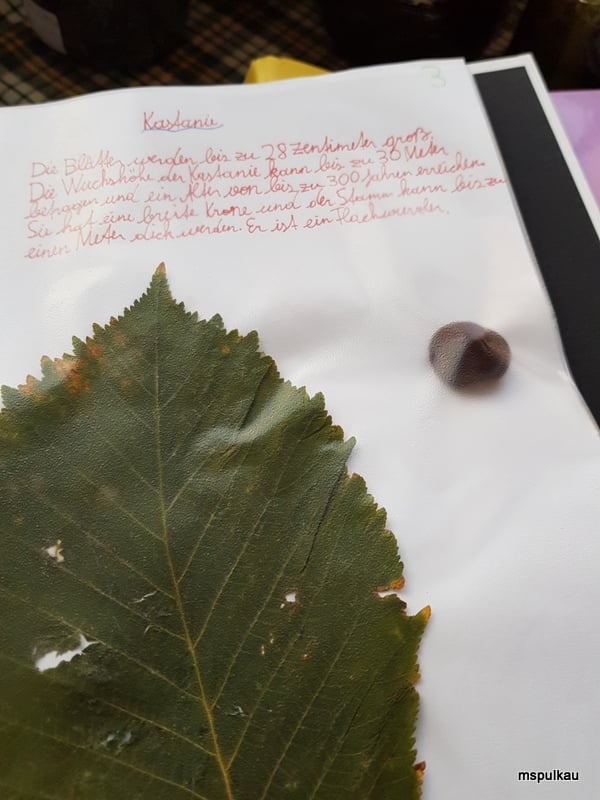 3
Kastanie
Die Blätter werden bis zu 28 Zentimeter groß.
Die Wuchshöhe der Kastanie kann bis zu 30 Meter
betragen und ein Alter von bis zu 300 Jahren erreichen.
Sie hat eine breite Krone und der Stamm kann bis zu
einen Meter dick werden. Er ist ein Flachwurzler.
mspulkau